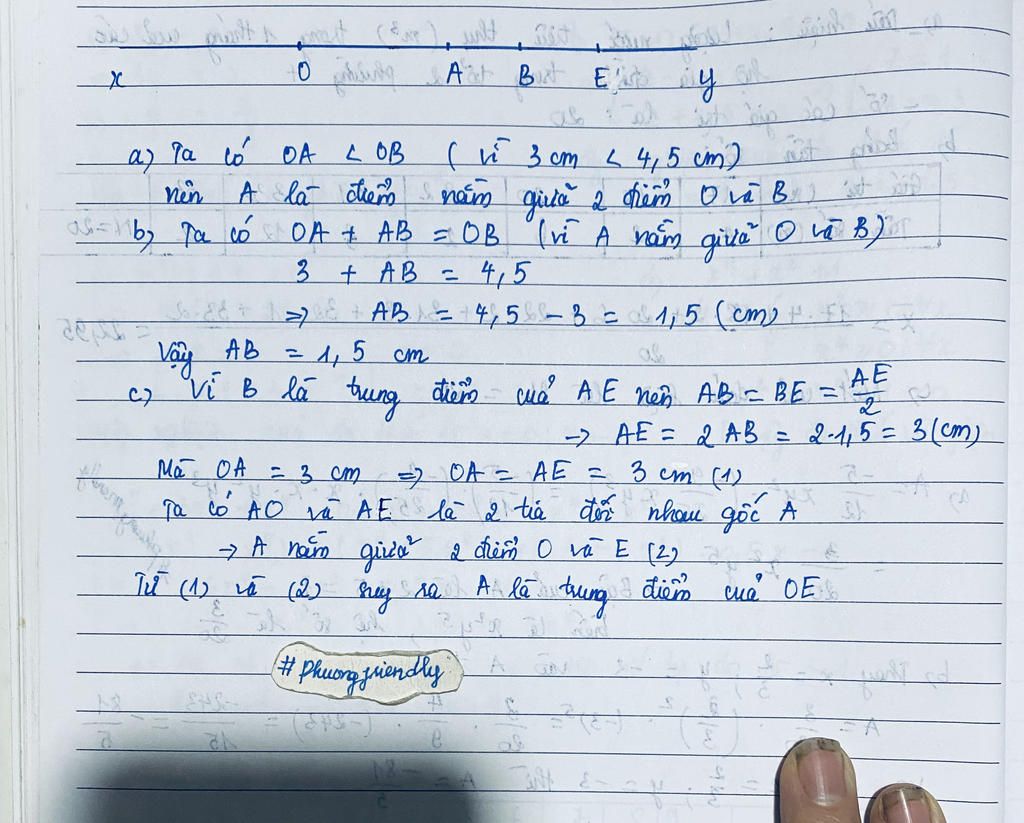 x O A B E y
a) Ta có OA < OB ( vì 3 cm < 4,5 cm)
nên A là điểm nằm giữa 2 điểm O và B
b) Ta có OA + AB = OB (vì A nằm giữa O và B)
3 + AB = 4,5
⇒ AB = 4,5 - 3 = 1,5 (cm)
Vậy AB = 1,5 cm
c) Vì B là trung điểm của AE nên AB = BE = AE/2
→ AE = 2 AB = 2.1,5 = 3 (cm)
Mà OA = 3 cm ⇒ OA = AE = 3 cm (1)
Ta có AO và AE là 2 tia đối nhau gốc A
→ A nằm giữa 2 điểm O và E (2)
Từ (1) và (2) suy ra A là trung điểm của OE
#phuongfriendly